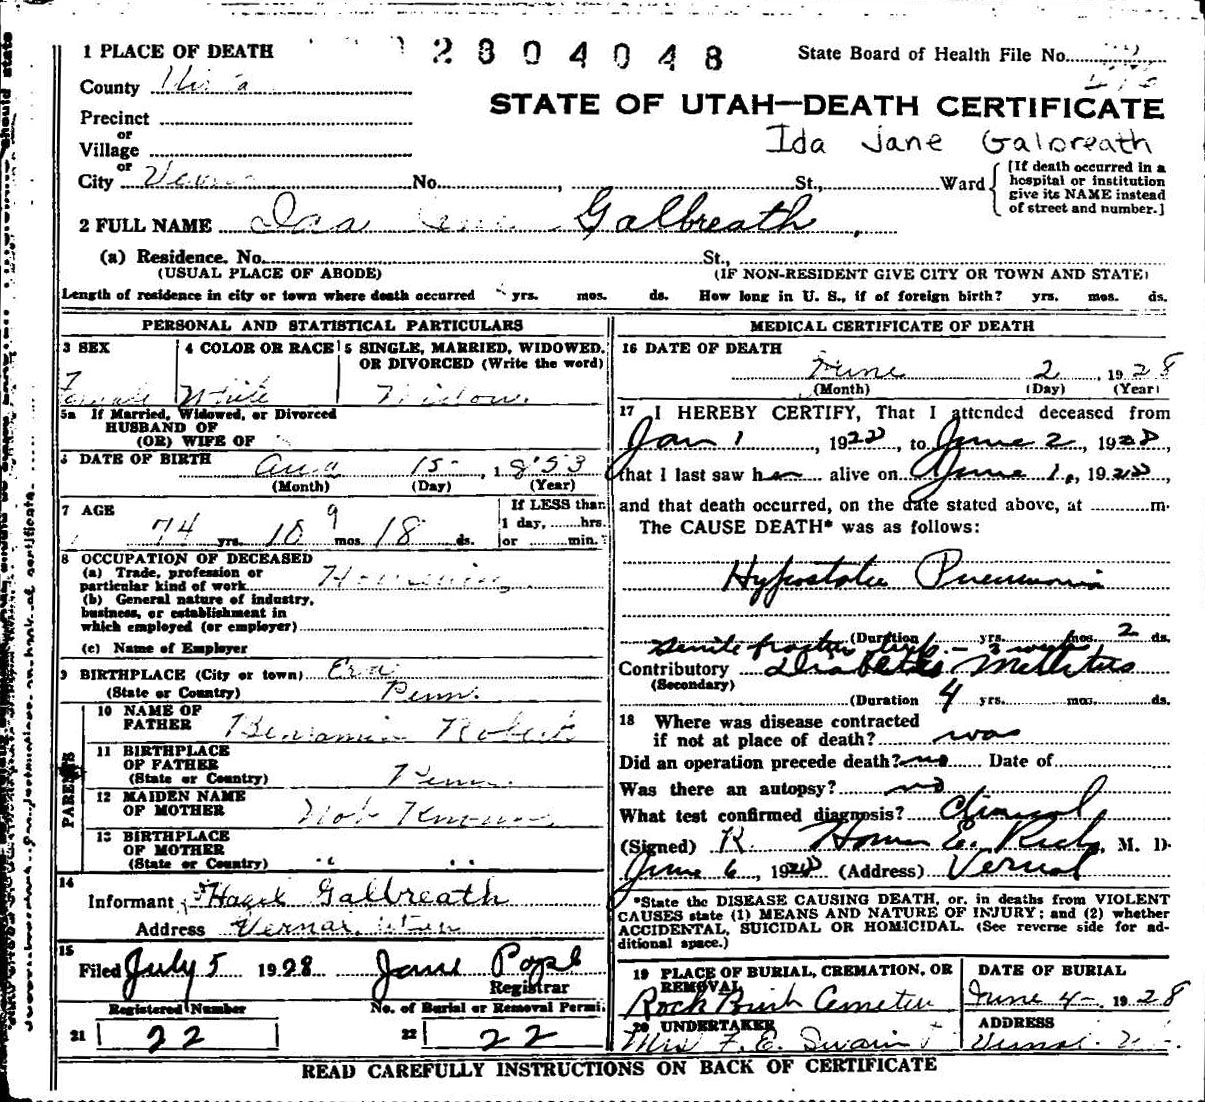 1 PLACE OF DEATH
2804048
State Board of Health File No.
County
STATE OF UTAH—DEATH CERTIFICATE
Precinct
or
Ida Jane Galbreath
Village
or
City No. , St., Ward
[If death occurred in a
hospital or institution
give its NAME instead
of street and number.]
2 FULL NAME Ida Galbreath
(a) Residence. No. St.,
(USUAL PLACE OF ABODE) (IF NON-RESIDENT GIVE CITY OR TOWN AND STATE)
Length of residence in city or town where death occurred yrs. mos. ds. How long in U. S., if of foreign birth? yrs. mos. ds.
PERSONAL AND STATISTICAL PARTICULARS
3 SEX
Female
4 COLOR OR RACE
White
5 SINGLE, MARRIED, WIDOWED,
OR DIVORCED (Write the word)
Widow.
5a If Married, Widowed, or Divorced
HUSBAND OF
(OR) WIFE OF
6 DATE OF BIRTH
Aug 15 - 1853
(Month) (Day) (Year)
7 AGE
74 yrs. 10 9 mos. 18 ds.
If LESS than
1 day, hrs.
or min.
8 OCCUPATION OF DECEASED
(a) Trade, profession or
particular kind of work
(b) General nature of industry,
business, or establishment in
which employed (or employer)
(c) Name of Employer
9 BIRTHPLACE (City or town)
(State or Country) Penn.
PARENTS
10 NAME OF
FATHER Benjamin
11 BIRTHPLACE
OF FATHER
(State or Country) Penn.
12 MAIDEN NAME
OF MOTHER Not Known
13 BIRTHPLACE
OF MOTHER
(State or Country) " "
14
Informant Galbreath
Address Vernal, Utah
15
Filed July 5 1928
Registrar
Registered Number No. of Burial or Removal Permit
21 22
22 22
MEDICAL CERTIFICATE OF DEATH
16 DATE OF DEATH
June 2, 1928
(Month) (Day) (Year)
17 I HEREBY CERTIFY, That I attended deceased from
Jan 1, 1928, to June 2, 1928
that I last saw her alive on June 1, 1928,
and that death occurred, on the date stated above, at m.
The CAUSE DEATH* was as follows:
Hypostatic Pneumonia
(Duration yrs. mos. 2 ds.
Contributory Diabetes Mellitus
(Secondary)
(Duration 4 yrs. mos. ds.
18 Where was disease contracted
if not at place of death? was
Did an operation precede death? no Date of
Was there an autopsy? no
What test confirmed diagnosis? Clinical
(Signed) R. E. M. D.
June 6, 1928 (Address) Vernal
*State the DISEASE CAUSING DEATH, or, in deaths from VIOLENT
CAUSES state (1) MEANS AND NATURE OF INJURY; and (2) whether
ACCIDENTAL, SUICIDAL OR HOMICIDAL. (See reverse side for ad-
ditional space.)
19 PLACE OF BURIAL, CREMATION, OR
REMOVAL
Rock
DATE OF BURIAL
June 4 - 1928
20 UNDERTAKER
Mrs F. E. Swain
ADDRESS
Vernal
READ CAREFULLY INSTRUCTIONS ON BACK OF CERTIFICATE